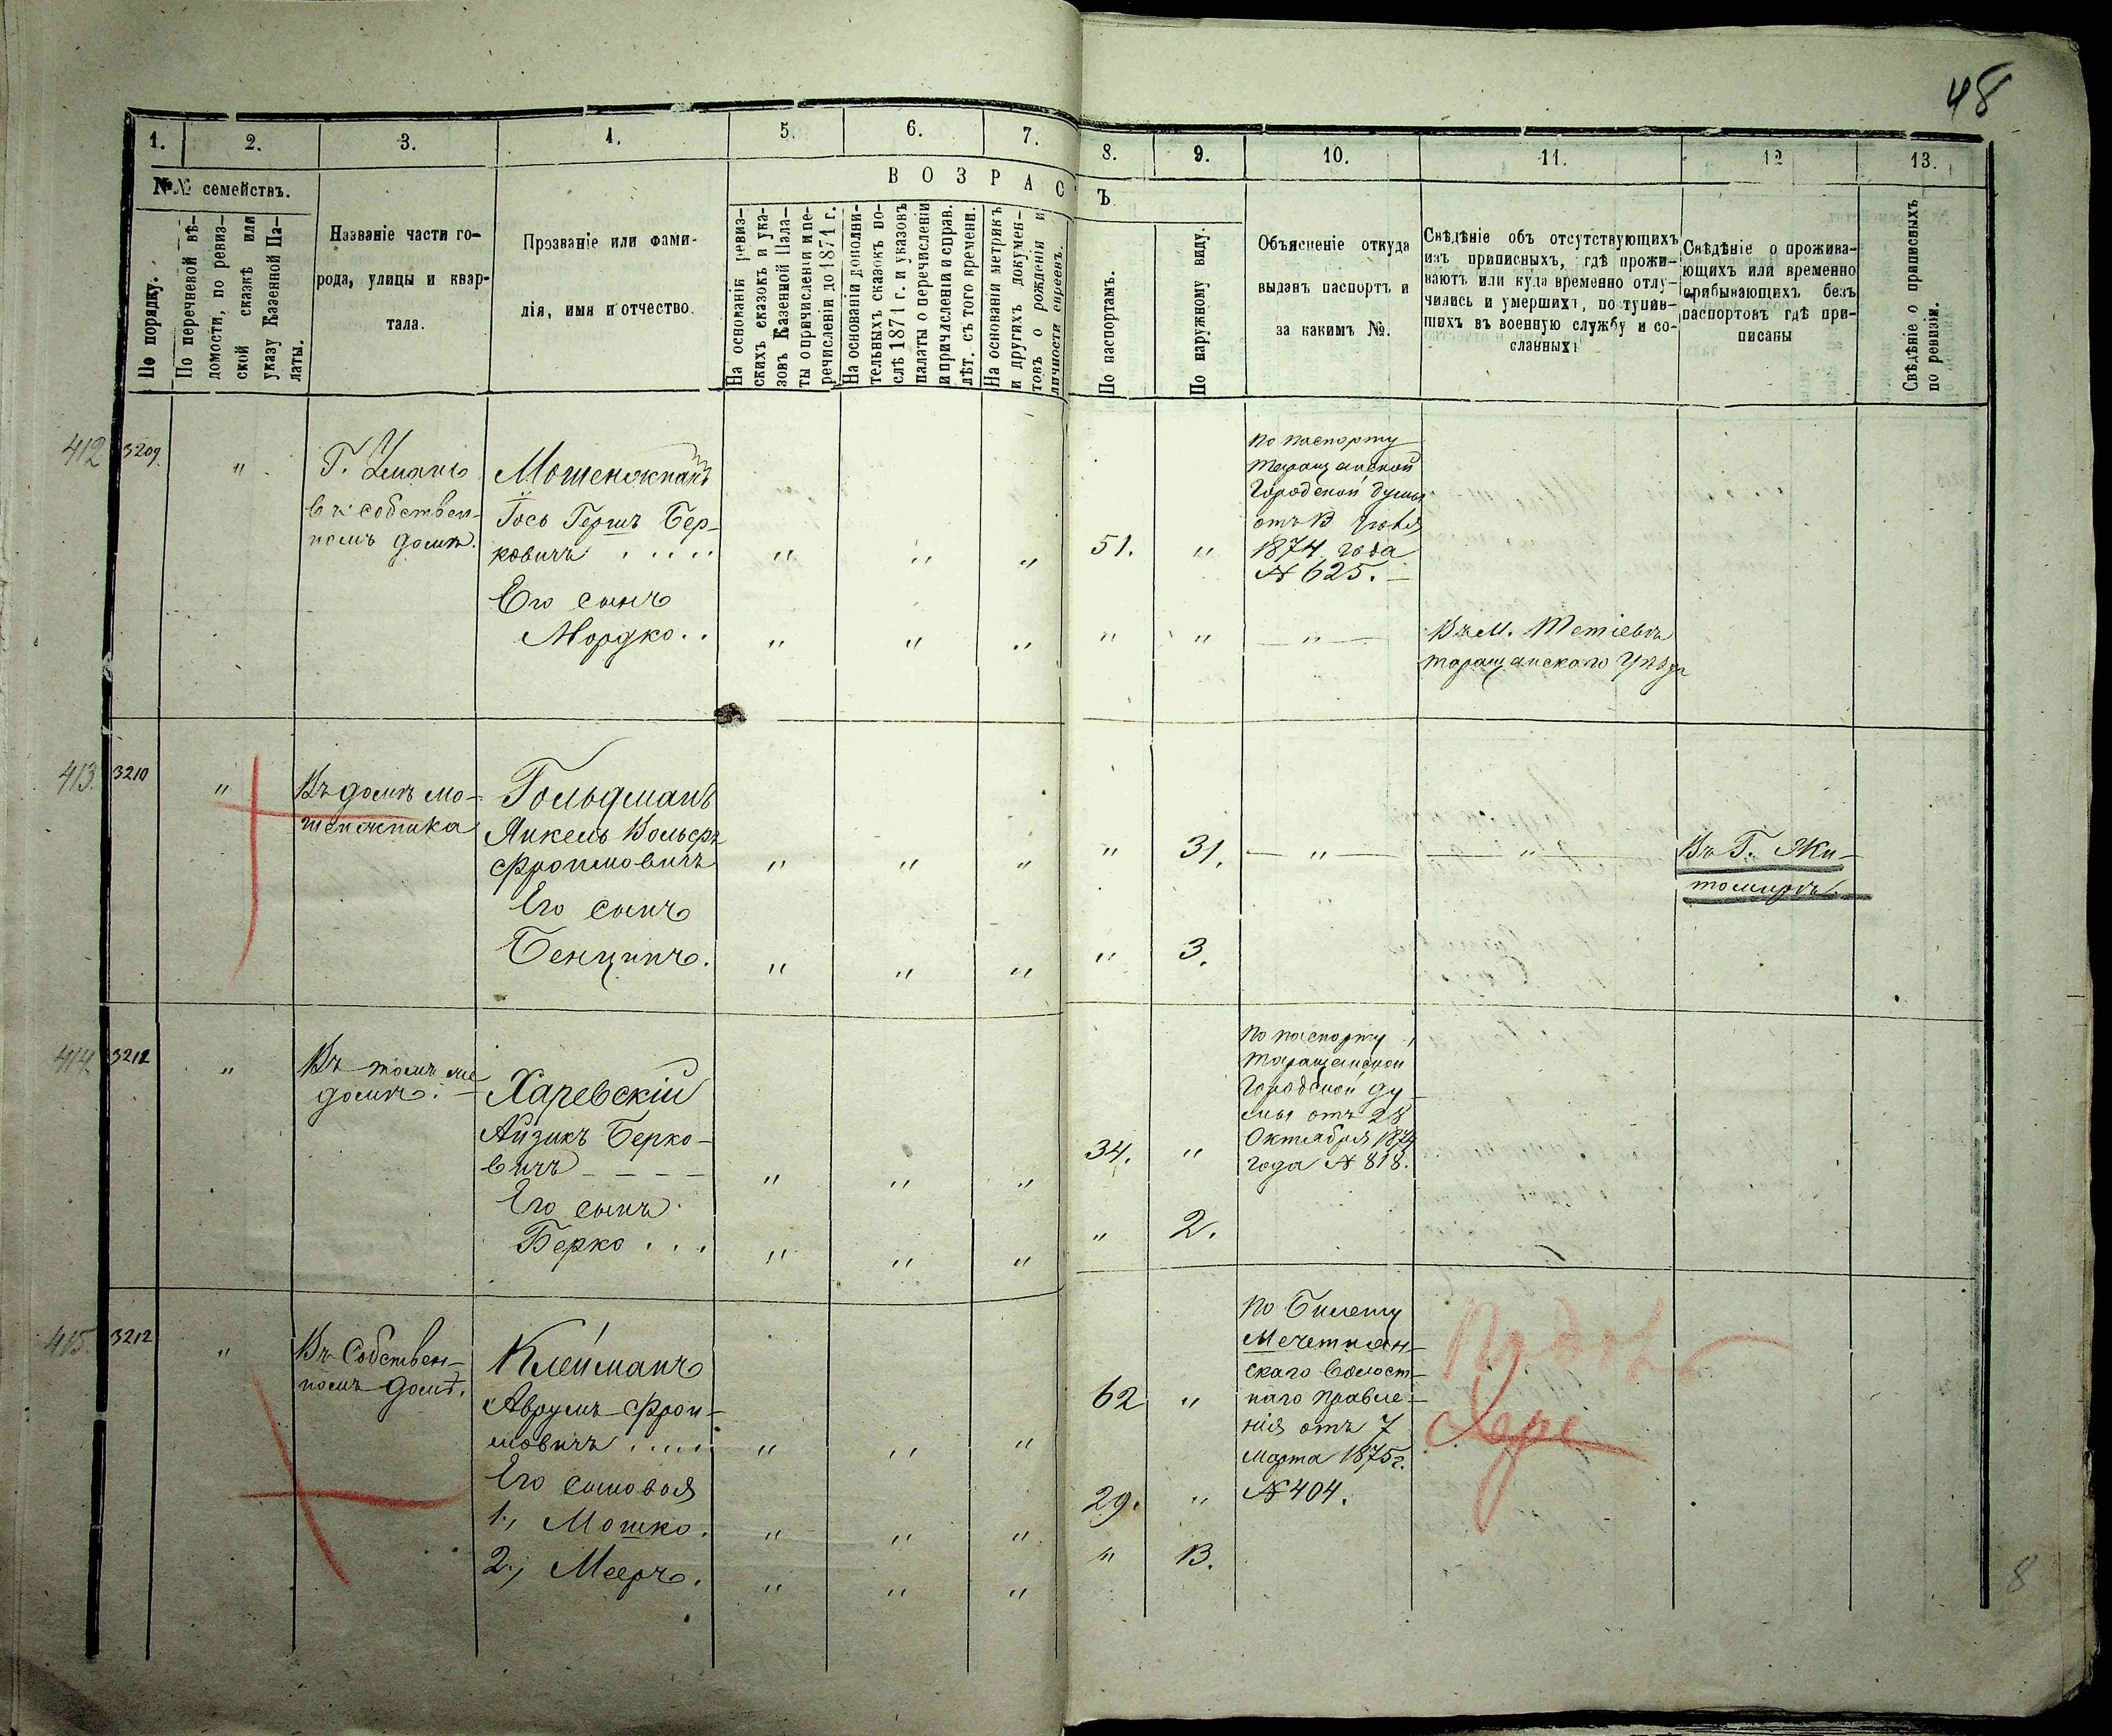 48
1. 2. 3. 4. 5. 6. 7. 8. 9. 10. 11. 12 13.
№№ семействъ.
В О З Р А С Ъ.
По порядку.
По перечневой вѣ-
домости, по ревиз-
ской сказкѣ или
указу Казенной Па-
латы.
Названіе части го-
рода, улицы и квар-
тала.
Прозваніе или фами-
лія, имя и отчество.
На основаніи ревиз-
скихъ сказокъ и ука-
зовъ Казенной Пала-
ты о причисленіи и пе-
речисленіи до 1871 г.
На основаніи дополни-
тельныхъ сказокъ по-
слѣ 1871 г. и указовъ
палаты о перечисленіи
и причисленіи и справ.
лѣт. съ того времени.
На основаніи метрикъ
и другихъ докумен-
товъ о рожденіи и
личности евреевъ.
По паспортамъ.
По наружному виду.
Объясненіе откуда
выданъ паспортъ и
за какимъ №.
Свѣдѣніе объ отсутствующихъ
изъ приписныхъ, гдѣ прожи-
ваютъ или куда временно отлу-
чились и умершихъ, поступив-
шихъ въ военную службу и со-
сланныхъ
Свѣдѣніе о прожива-
ющихъ или временно
прибывающихъ безъ
паспортовъ гдѣ при-
писаны
Свѣдѣніе о приписныхъ
по ревизіи.
412 3209.
Г. Умань
въ собствен-
номъ домѣ.
Мошенжникъ
Іось Гершъ Бер-
ковичъ . . . .
51.
По паспорту
Таращанской
Городской думы
отъ 13 Іюля
1874 года
№ 625.
Его сынъ
Мордко . .
Въ М. Тетіевѣ
таращанскаго уѣзда
413. 3210
Въ домѣ Мо-
шенжника
Гольдманъ
Янкель Вольфъ
Фроимовичъ
31.
Въ Г. Жи-
томирѣ.
Его сынъ
Бенціинъ.
3.
414 3212
Въ томъ же
домѣ.
Харевскій
Айзикъ Берко-
вичъ
34.
По паспорту
Таращанской
Городской Ду-
мы отъ 28
Октября 1874
года № 818.
Его сынъ
Берко . . .
2.
415. 3212
Въ Собствен-
номъ Домѣ.
Клейманъ
Аврумъ-Фрои-
мовичъ . . . . .
62
По билету
Мечетнян-
скаго Волост-
наго Правле-
нія отъ 7
Марта 1875 г.
№ 404.
Его сыновья
1., Мошко.
29.
2., Мееръ.
13.
8